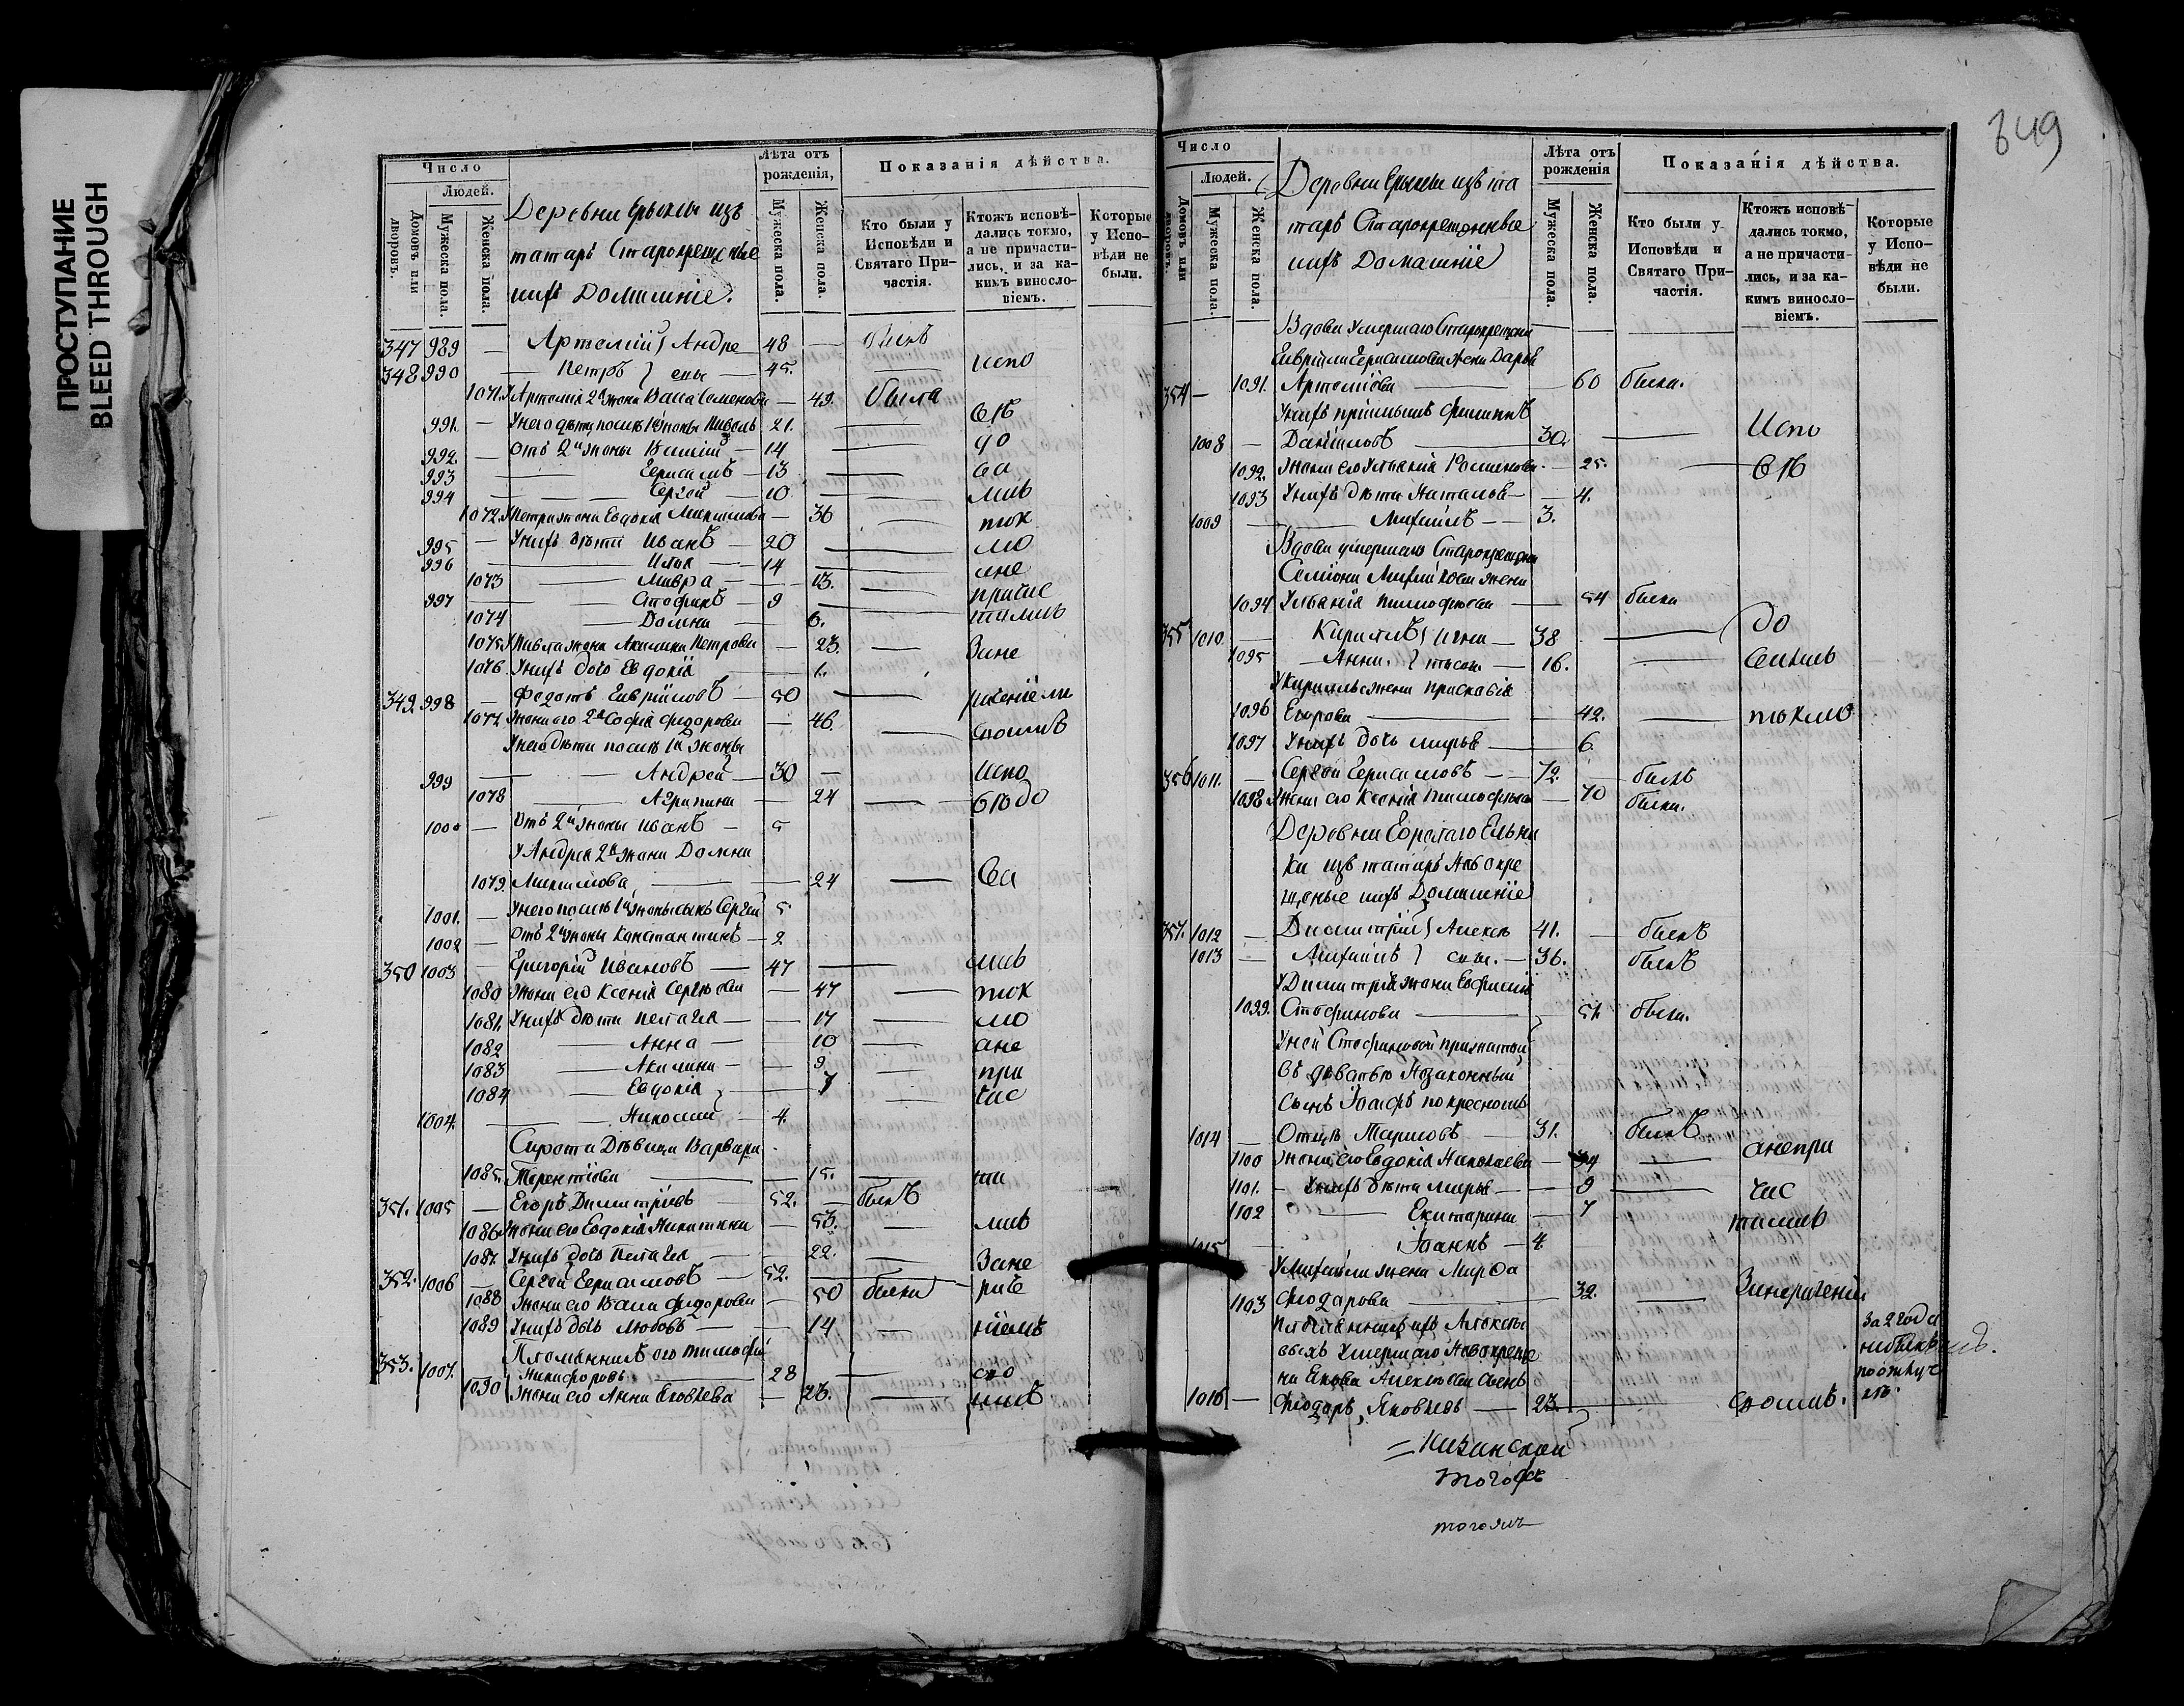 ПРОСТУПАНИЕ
BLEED THROUGH
Число
Людей.
Домовъ или дворовъ.
Мужеска пола.
Женска пола.
Деревни Ерыклы изъ
татаръ Старокрещеные
ихъ Домашніе.
Лѣта отъ рожденія,
Мужеска пола.
Женска пола.
Показанія дѣйства.
Кто были у Исповѣди и Святаго Причастія.
Ктожъ исповѣдались токмо, а не причастились, и за какимъ винословіемъ.
Которые у Исповѣди не были.
347 989 — Артемій } Андре 48 — былъ
348 990 — Петръ } евы — 45. — испо
1071. У Артемія 2я жена Васса Семенова — 49. была
991. — У него дѣти после 1й жены Павелъ 21. — вѣ
992. — Отъ 2й жены Василій — 14 — до
993 — Герасимъ — 13 — ва
994 — Сергей — 10 — лись
1072. У Петра жена Евдокія Максимова — 36 — ток
995 — У нихъ дѣти Иванъ — 20 — мо
996 — Илья — 14 — ане
1073 — Мавра — 13. — причас
997 — Стефанъ — 9 —
1074 — Домна — 6. — тились
1075. У Павла жена Акилина Петрова — 23. — Зане
1076. У нихъ дочь Евдокія — 1.
349. 998 — Федотъ Гавріиловъ — 50 — раченіемъ
1077. Жена его 2я Софія Федорова — 46. — своимъ
У него дѣти после 1й жены
999 — Андрей — 30 — Испо
1078 — Агрипина — 24 — вѣдо
1000 — Отъ 2й жены Иванъ — 5
У Андрея 2я жена Домна
1079. Максимова — 24 — ва
1001. — У него после 1й жены сынъ Сергей 5
1002 — Отъ 2й жены Константинъ — 2
350 1003 — Григорій Ивановъ — 47 — лись
1080 Жена его Ксенія Сергеева — 47 — ток
1081. У нихъ дѣти Пелагея — 17 — мо
1082 — Анна — 10 — ане
1083 — Акилина — 9 — при
1084 — Евдокія — 7 — час
1004. — Николай — 4.
Сирота Дѣвица Варвара
1085. Терентіева — 15. — ти
351. 1005 — Егоръ Димитріевъ — 52. — былъ
1086. Жена его Евдокія Никитина — 53. — лись
1087. У нихъ дочь Пелагея — 22. — Зане
352. 1006 — Сергей Герасимовъ — 52.
1088 Жена его Васса Федорова — 50 была — раче
1089 У нихъ дочь Любовь — 14 — ніемъ
Племянникъ его Тимофей
353. 1007. Никифоровъ — 28 — сво
1090 Жена его Анна Яковлева — 23. — имъ
349
Число
Людей.
Домовъ или дворовъ.
Мужеска пола
Женска пола.
Деревни Ерыклы изъ та
таръ Старокрещенные
ихъ Домашніе
Лѣта отъ рожденія
Мужеска пола.
Женска пола.
Показанія дѣйства.
Кто были у Исповѣди и Святаго Причастія.
Ктожъ исповѣдались токмо, а не причастились, и за какимъ винословіемъ.
Которые у Исповѣди не были.
Вдова умершаго Старокрещена
Гавріила Герасимова жена Дарья
354 — 1091. Артеміева — 60 была.
У нихъ пріемышъ Филиппъ
1008 — Даниловъ — 30. — Испо
1092. Жена его Ульянія — 25. — вѣ
1093 У нихъ дѣти Наталья — 4.
1009 — Михаилъ — 3.
Вдова умершаго Старокрещена
Семіона Михайлова жена
1094 Ульянія Тимофеева — 54 была
355 1010. — Кирилъ } — 38 — до
1095 — Анна. } — 16. — вались
У Кирилы жена Прасковія
1096 Егорова — 42. — токмо
1097 У нихъ дочь Марья — 6.
356 1011. — Сергей Герасимовъ — 72. — былъ
1098 Жена его Ксенія Тимофеева — 70 была.
Деревни Ельни
ки изъ татаръ Новокре
щеные ихъ Домашніе
357. 1012 — Димитрій } Алексѣ 41. — былъ
1013 — Михаилъ } евы. — 36. былъ
У Димитрія жена Евфимія
1099. Стефанова — 51. была.
У ней Стефановой прижатый
въ девстве Незаконный
сынъ Іосифъ по крестномъ
1014 — Отцѣ — 31. былъ
1100 Жена его Евдокія Николаева — 34 — анепри
1101. — У нихъ дѣти Марья — 9 — час
1102 — Екатерина — 7 тились
1015 — Іоаннъ — 4.
У Михаила жена Марфа
1103 Феодорова — 32. — Занераченіе
Племянникъ ихъ Алексе
выхъ Умершаго Новокреще
на Якова Алексеева сынъ
1016 — Феодоръ Яковлевъ — 23. — своимъ. За 2 года не былъ по отлучкѣ.